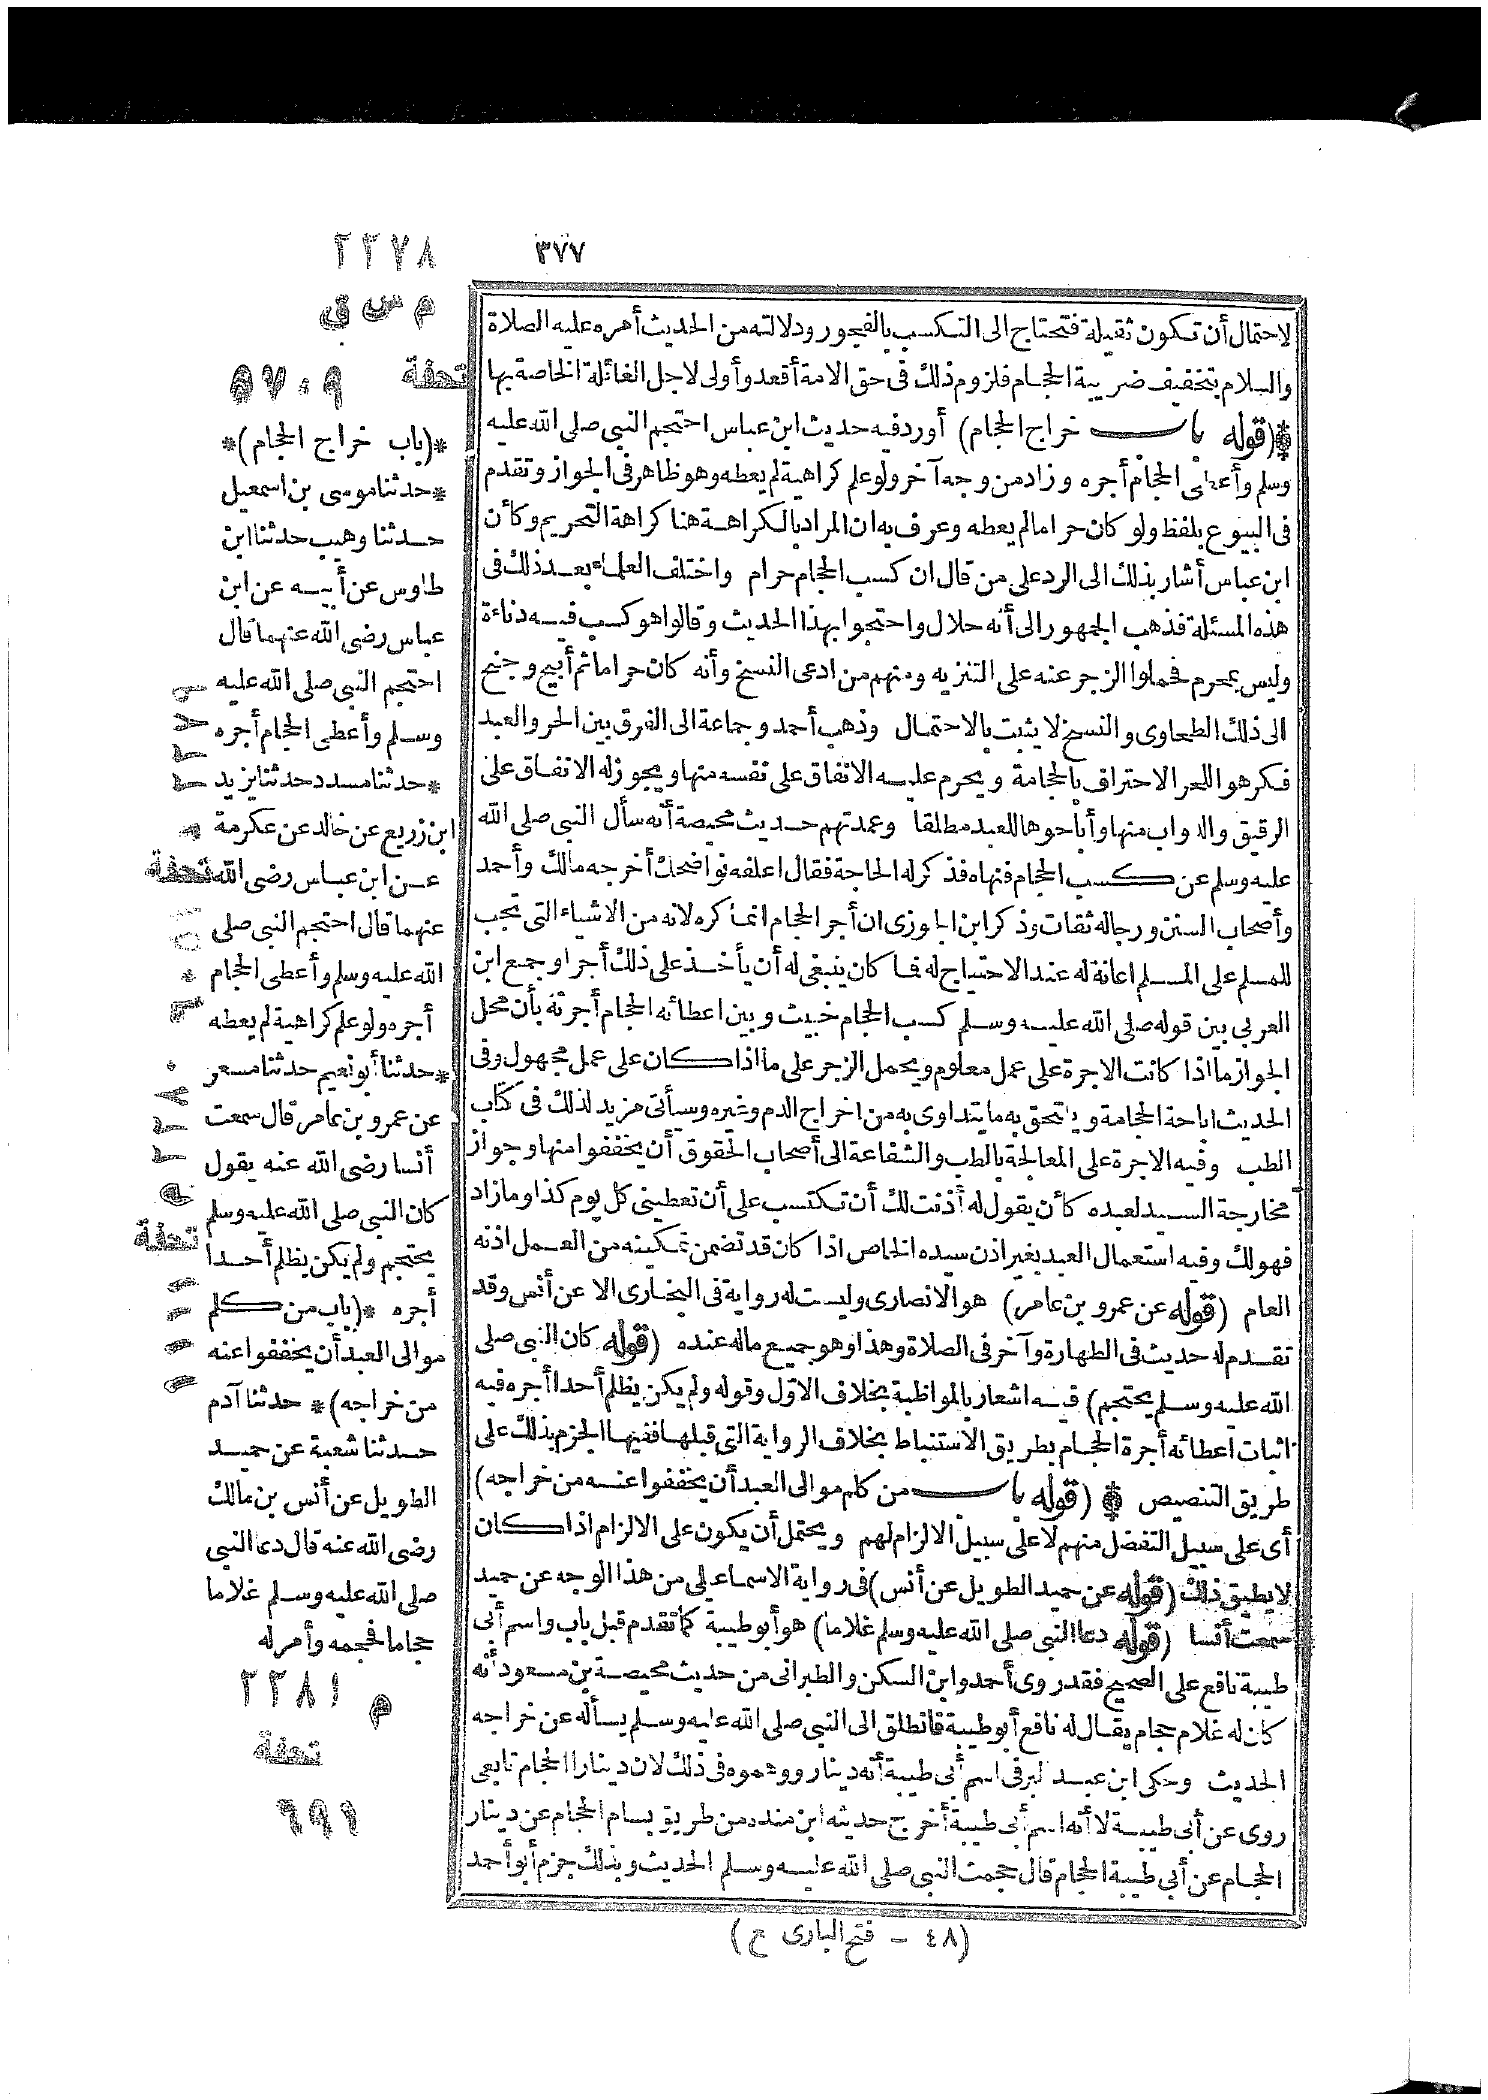 ٣٧٧
لاحتمال أن تكون ثقيلة فتحتاج الى التكسب بالفجور ودلالته من الحديث أمره عليه الصلاة
والسلام بتخفيف ضريبة الحجام فلزوم ذلك فى حق الامة أقعد وأولى لاجل الغائلة الخاصة بها
* (قوله باب خراج الحجام) أورد فيه حديث ابن عباس احتجم النبي صلى الله عليه
وسلم وأعطى الحجام أجره وزاد من وجه آخر ولو علم كراهية لم يعطه وهو ظاهر فى الجواز وتقدم
فى البيوع بلفظ ولو كان حراما لم يعطه وعرف به ان المراد بالكراهة هنا كراهة التحريم وكأن
ابن عباس أشار بذلك الى الرد على من قال ان كسب الحجام حرام واختلف العلماء بعد ذلك فى
هذه المسئلة فذهب الجمهور الى أنه حلال واحتجوا بهذا الحديث وقالوا هو كسب فيه دناءة
وليس بمحرم فحملوا الزجر عنه على التنزيه ومنهم من ادعى النسخ وأنه كان حراما ثم أبيح وجنح
الى ذلك الطحاوى والنسخ لا يثبت بالاحتمال وذهب أحمد وجماعة الى الفرق بين الحر والعبد
فكرهوا للحر الاحتراف بالحجامة ويحرم عليه الانفاق على نفسه منها ويجوز له الانفاق على
الرقيق والدواب منها وأباحوها للعبد مطلقا وعمدتهم حديث محيصة أنه سأل النبي صلى الله
عليه وسلم عن كسب الحجام فنهاه فذكر له الحاجة فقال اعلفه نواضحك أخرجه مالك وأحمد
وأصحاب السنن ورجاله ثقات وذكر ابن الجوزى ان أجر الحجام انما كره لانه من الاشياء التى تجب
للمسلم على المسلم اعانة له عند الاحتياج له فما كان ينبغى له أن يأخذ على ذلك أجرا وجمع ابن
العربى بين قوله صلى الله عليه وسلم كسب الحجام خبيث وبين اعطائه الحجام أجرته بأن محل
الجواز ما اذا كانت الاجرة على عمل معلوم ويحمل الزجر على ما اذا كان على عمل مجهول وفى
الحديث اباحة الحجامة ويلتحق به ما يتداوى به من اخراج الدم وغيره وسيأتى مزيد لذلك فى كتاب
الطب وفيه الاجرة على المعالجة بالطب والشفاعة الى أصحاب الحقوق أن يخففوا منها وجواز
مخارجة السيد لعبده كأن يقول له أذنت لك أن تكتسب على أن تعطينى كل يوم كذا وما زاد
فهو لك وفيه استعمال العبد بغير اذن سيده الخاص اذا كان قد تضمن تمكينه من العمل اذنه
العام (قوله عن عمرو بن عامر) هو الانصارى وليست له رواية فى البخارى الا عن أنس وقد
تقدم له حديث فى الطهارة وآخر فى الصلاة وهذا وهو جميع ماله عنده (قوله كان النبي صلى
الله عليه وسلم يحتجم) فيه اشعار بالمواظبة بخلاف الاول وقوله ولم يكن يظلم أحدا أجره فيه
اثبات اعطائه أجرة الحجام بطريق الاستنباط بخلاف الرواية التى قبلها ففيها الجزم بذلك على
طريق التنصيص * (قوله باب من كلم موالى العبد أن يخففوا عنه من خراجه)
أى على سبيل التفضل منهم لا على سبيل الالزام لهم ويحتمل أن يكون على الالزام اذا كان
لا يطيق ذلك (قوله عن حميد الطويل عن أنس) فى رواية الاسماعيلى من هذا الوجه عن حميد
سمعت أنسا (قوله دعا النبي صلى الله عليه وسلم غلاما) هو أبو طيبة كما تقدم قبل باب واسم أبى
طيبة نافع على الصحيح فقد روى أحمد وابن السكن والطبرانى من حديث محيصة بن مسعود أنه
كان له غلام حجام يقال له نافع أبو طيبة فانطلق الى النبي صلى الله عليه وسلم يسأله عن خراجه
الحديث وحكى ابن عبد البر فى اسم أبى طيبة أنه دينار ووهموه فى ذلك لان دينارا الحجام تابعى
روى عن أبى طيبة لا أنه اسم أبى طيبة أخرج حديثه ابن منده من طريق بسام الحجام عن دينار
الحجام عن أبى طيبة الحجام قال حجمت النبي صلى الله عليه وسلم الحديث وبذلك جزم أبو أحمد
(٤٨ – فتح البارى ع)
٢٢٧٨
م س ق
تحفة ٥٧٠٩
*(باب خراج الحجام)*
*حدثنا موسى بن اسمعيل
حدثنا وهيب حدثنا ابن
طاوس عن أبيه عن ابن
عباس رضى الله عنهما قال
احتجم النبي صلى الله عليه
وسلم وأعطى الحجام أجره
*حدثنا مسدد حدثنا يزيد
ابن زريع عن خالد عن عكرمة
عن ابن عباس رضى الله
عنهما قال احتجم النبي صلى
الله عليه وسلم وأعطى الحجام
أجره ولو علم كراهية لم يعطه
*حدثنا أبو نعيم حدثنا مسعر
عن عمرو بن عامر قال سمعت
أنسا رضى الله عنه يقول
كان النبي صلى الله عليه وسلم
يحتجم ولم يكن يظلم أحدا
أجره *(باب من كلم
موالى العبد أن يخففوا عنه
من خراجه)* حدثنا آدم
حدثنا شعبة عن حميد
الطويل عن أنس بن مالك
رضى الله عنه قال دعا النبي
صلى الله عليه وسلم غلاما
حجاما فحجمه وأمر له
٢٢٨١ م
تحفة
٦٩١
٢٢٧٩
تحفة
٢٢٨٠
تحفة